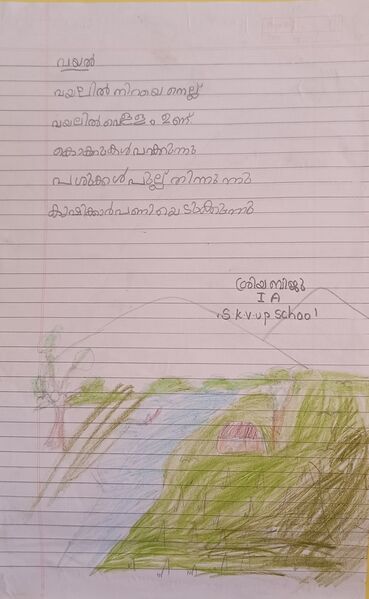 വയൽ
വയലിൽ നിറയെ നെല്ല്
വയലിൽ വെള്ളം ഉണ്ട്
കൊക്കുകൾ പറക്കുന്നു
പശുക്കൾ പുല്ല് തിന്നുന്നു
കൃഷിക്കാർ പണിയെടുക്കുന്നു
ശ്രിയ ബിജു
I A
S.K.V.UP School